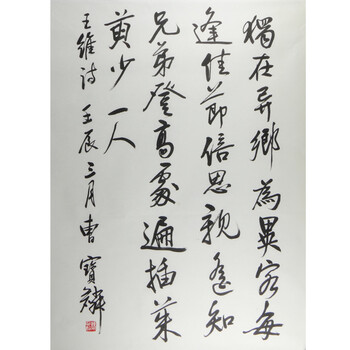 獨在异鄉為異客每
逢佳節倍思親遙知
兄弟登高處遍插茱
萸少一人
王維詩 壬辰三月曹寶麟